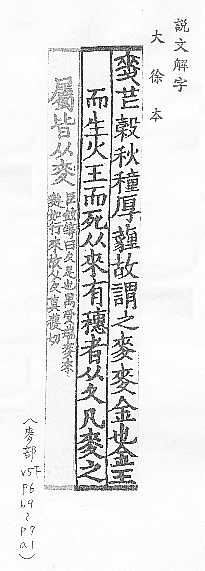 説文解字
大徐本
麥芒穀秋穜厚薶故謂之麥麥金也金王
而生火王而死从來有穗者从夊凡麥之
屬皆从麥臣鉉等曰夊足也周受瑞麥來
麰如行來故从夊莫獲切
(麥部 v5下
P6
b9
2
P7
a1)